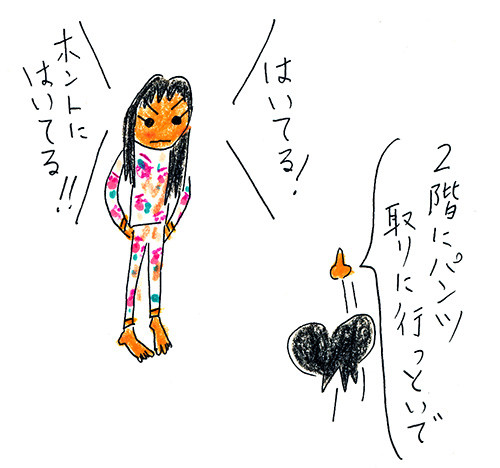 はいてる!
ホントに
はいてる!!
2階にパンツ
取りに行っといで